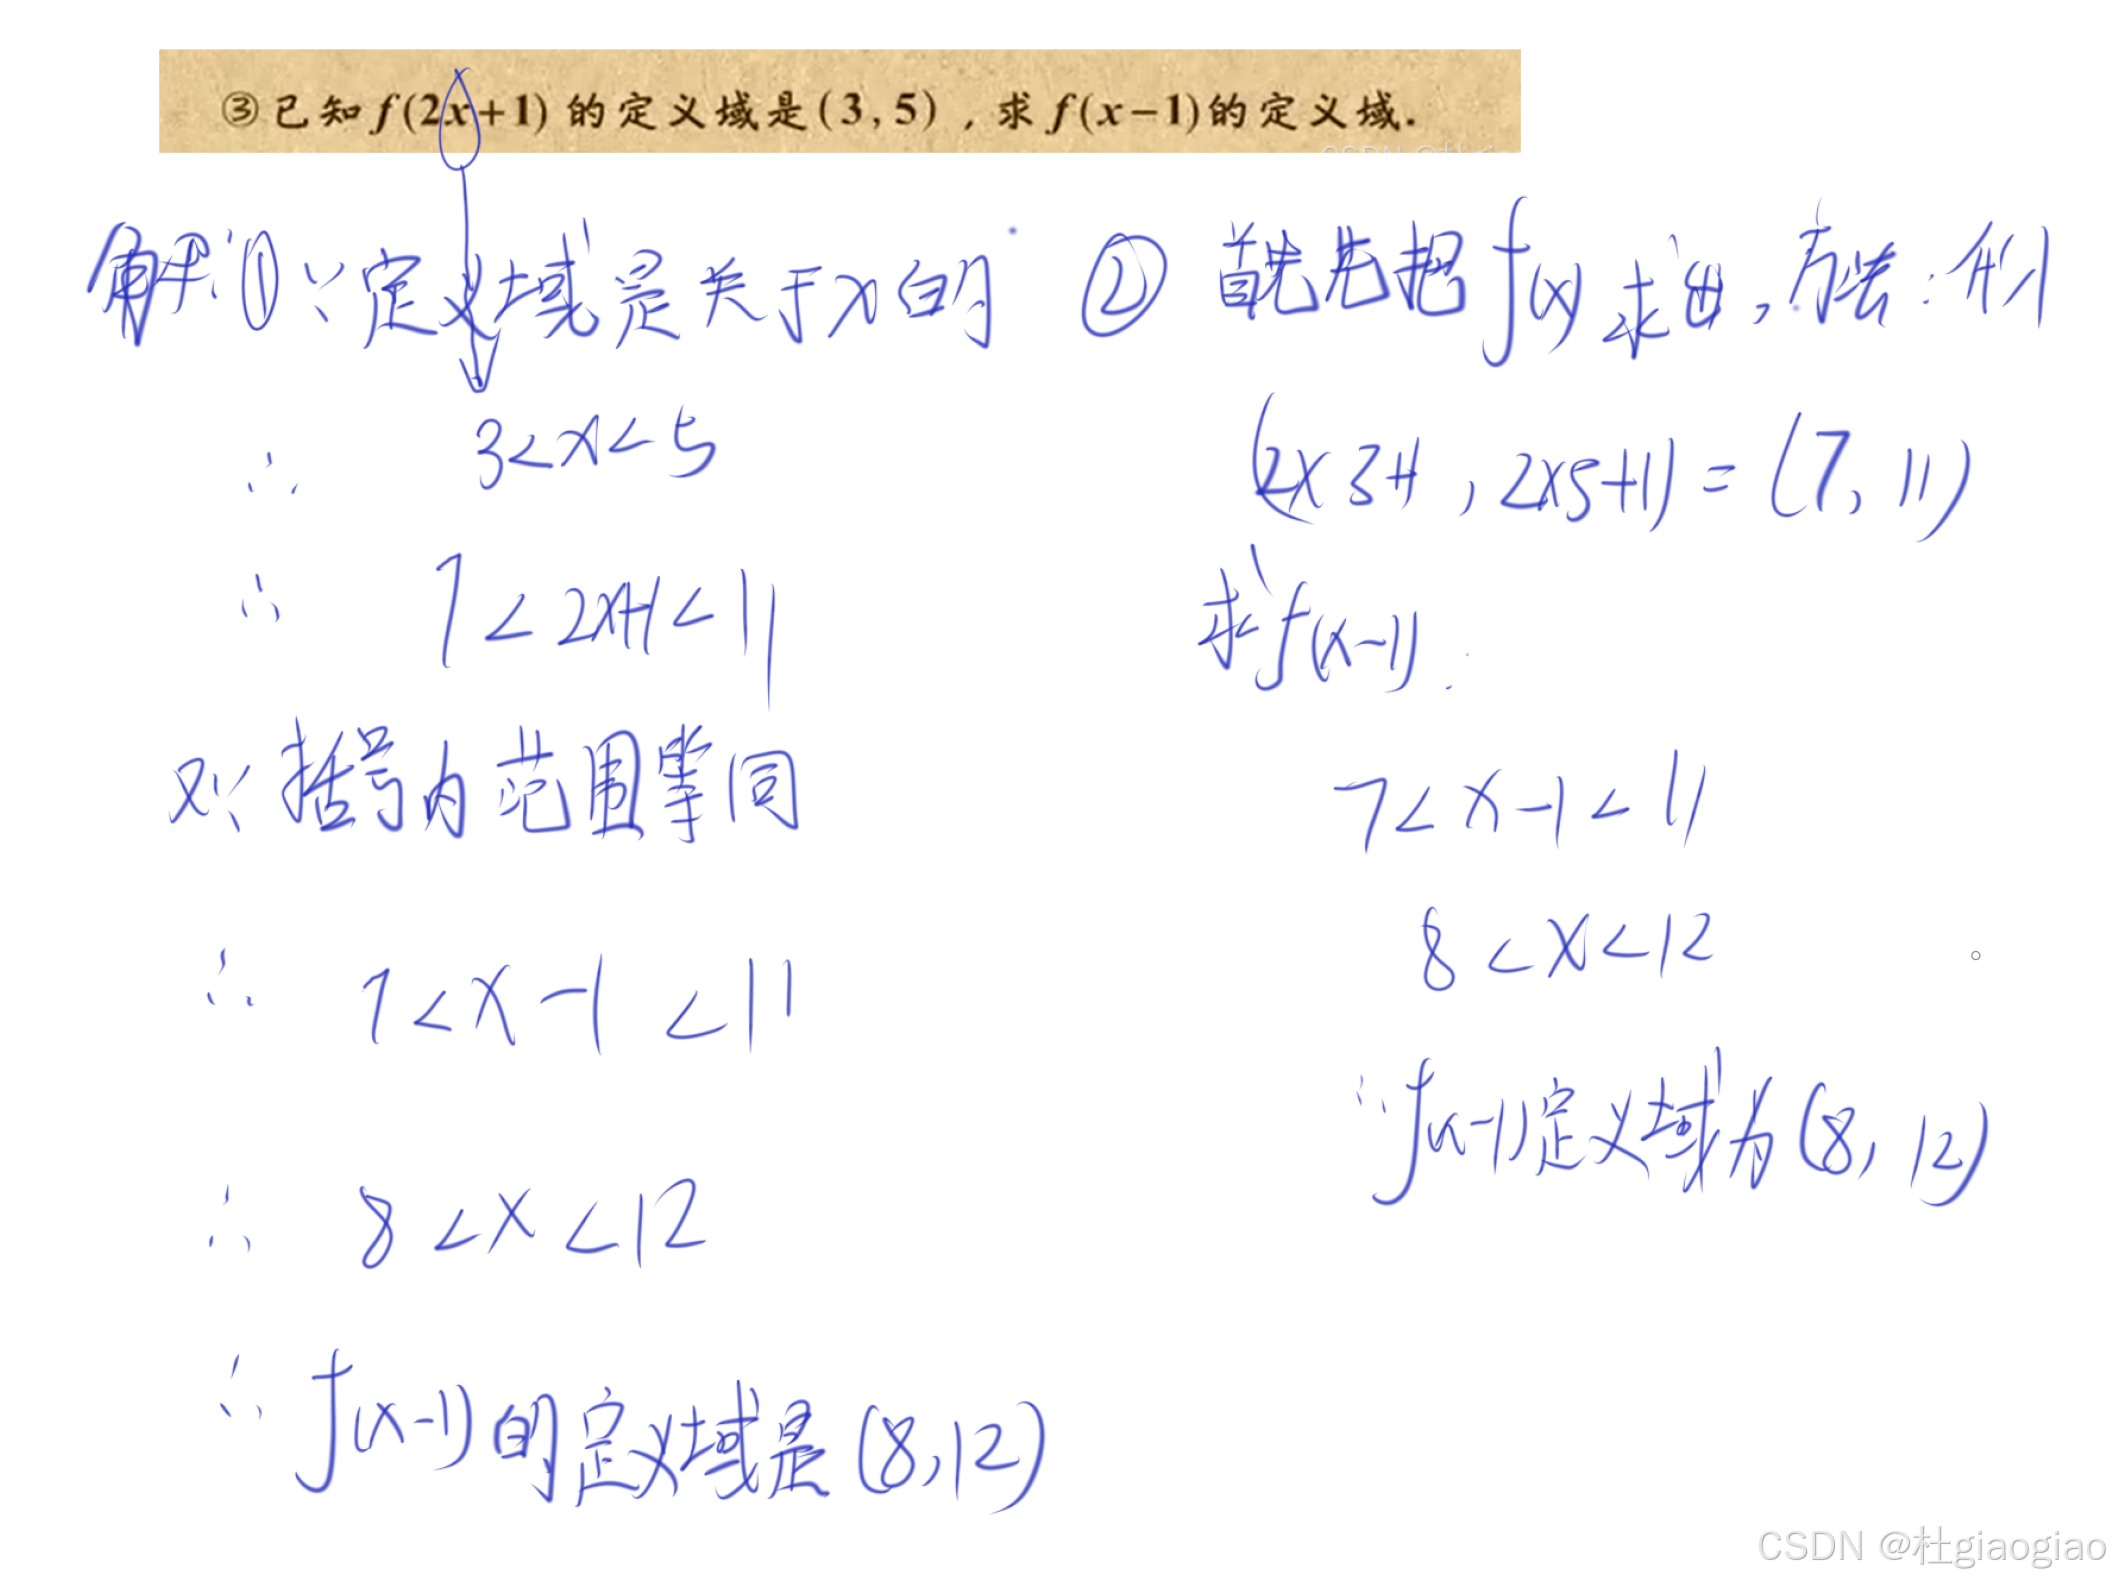 ③已知 f(2x+1) 的定义域是(3,5),求 f(x-1)的定义域.
解:①∵定义域是关于x的
∴ 3<x<5
∴ 7<2x+1<11
又∵括号内范围等同
∴ 7<x-1<11
∴ 8<x<12
∴ f(x-1)的定义域是(8,12)
② 首先把f(x)求出,方法:
(2×3+1,2×5+1)=(7,11)
求f(x-1).
7<x-1<11
8<x<12
∴f(x-1)定义域为(8,12)
CSDN @杜giaogiao